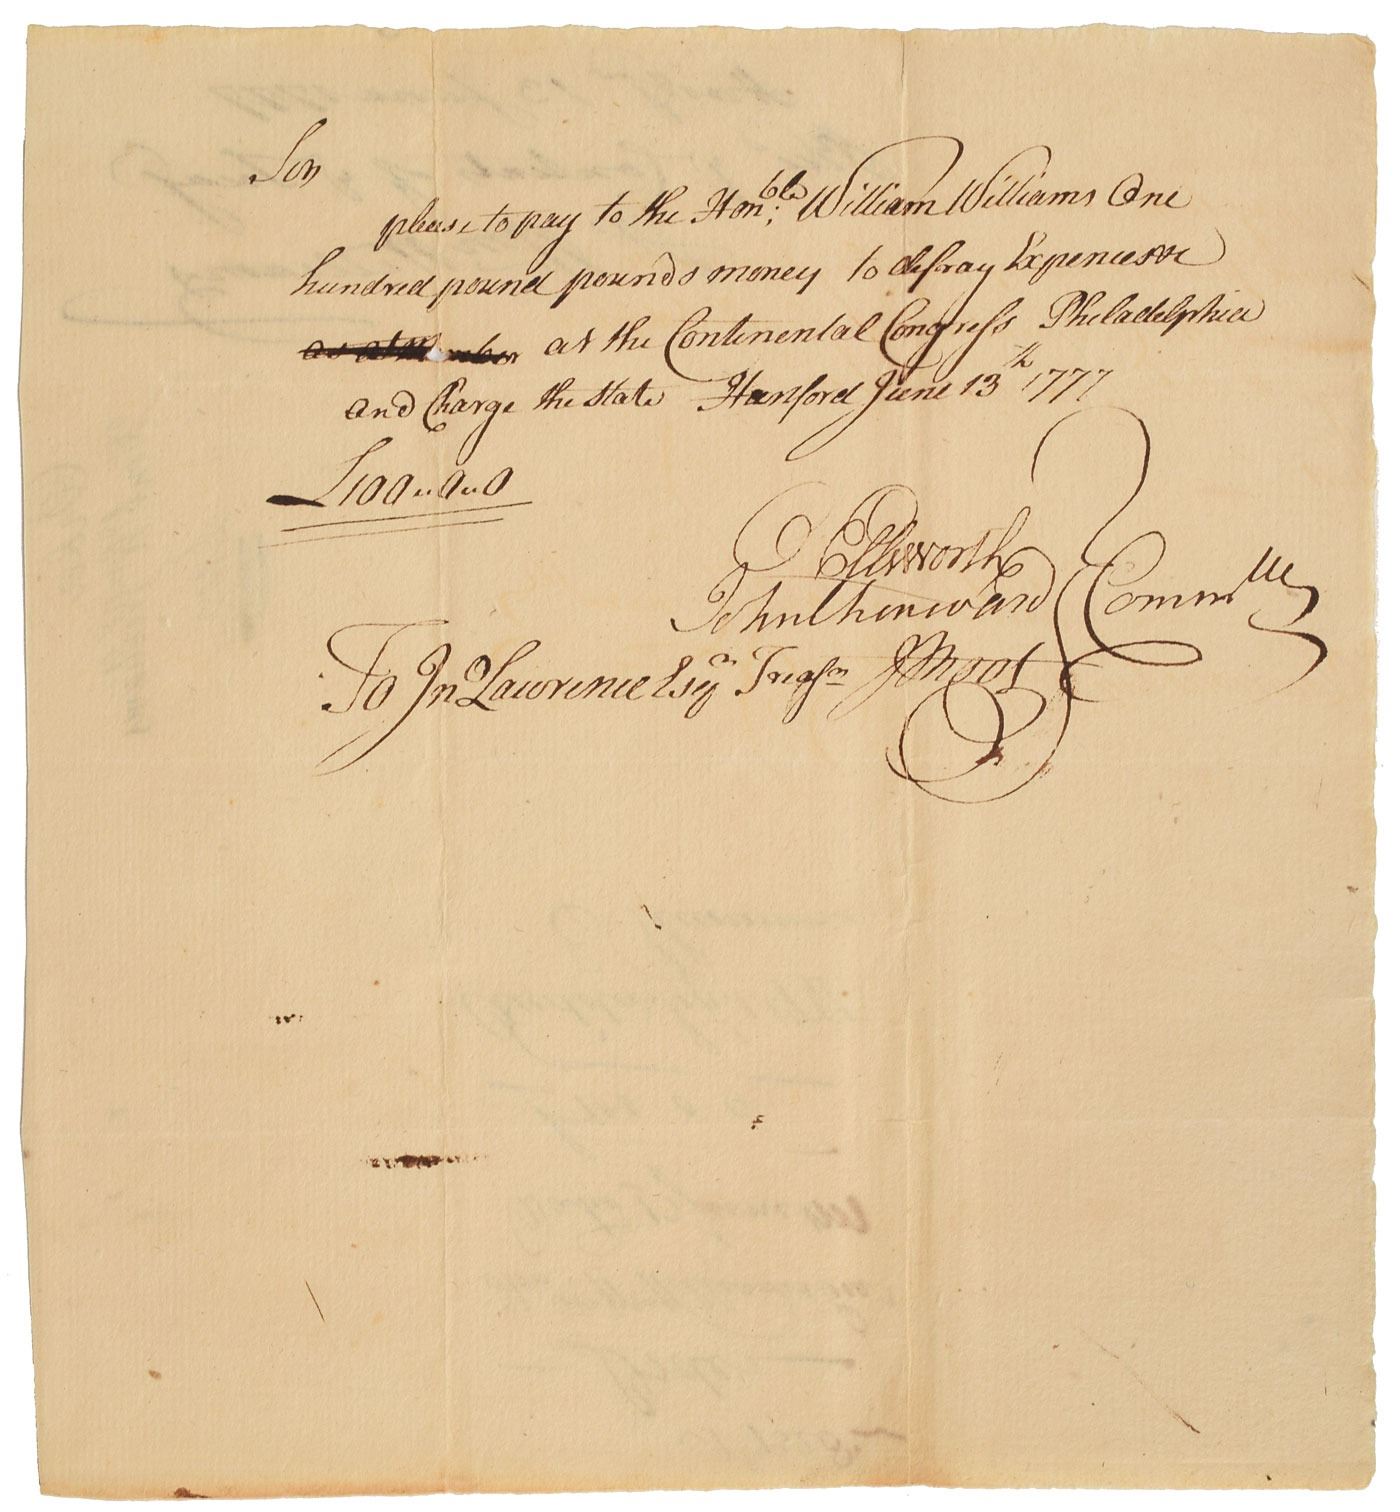 Sir
please to pay to the Hon:ble William Williams One
hundred pound pounds money to defray Expences &c
as a Member at the Continental Congress Philadelphia
and Charge the State Hartford June 13th 1777
£100 " 0 " 0
O Ellsworth
John Chenward Commttee
To Jno Lawrence Esqr Treasr J Root